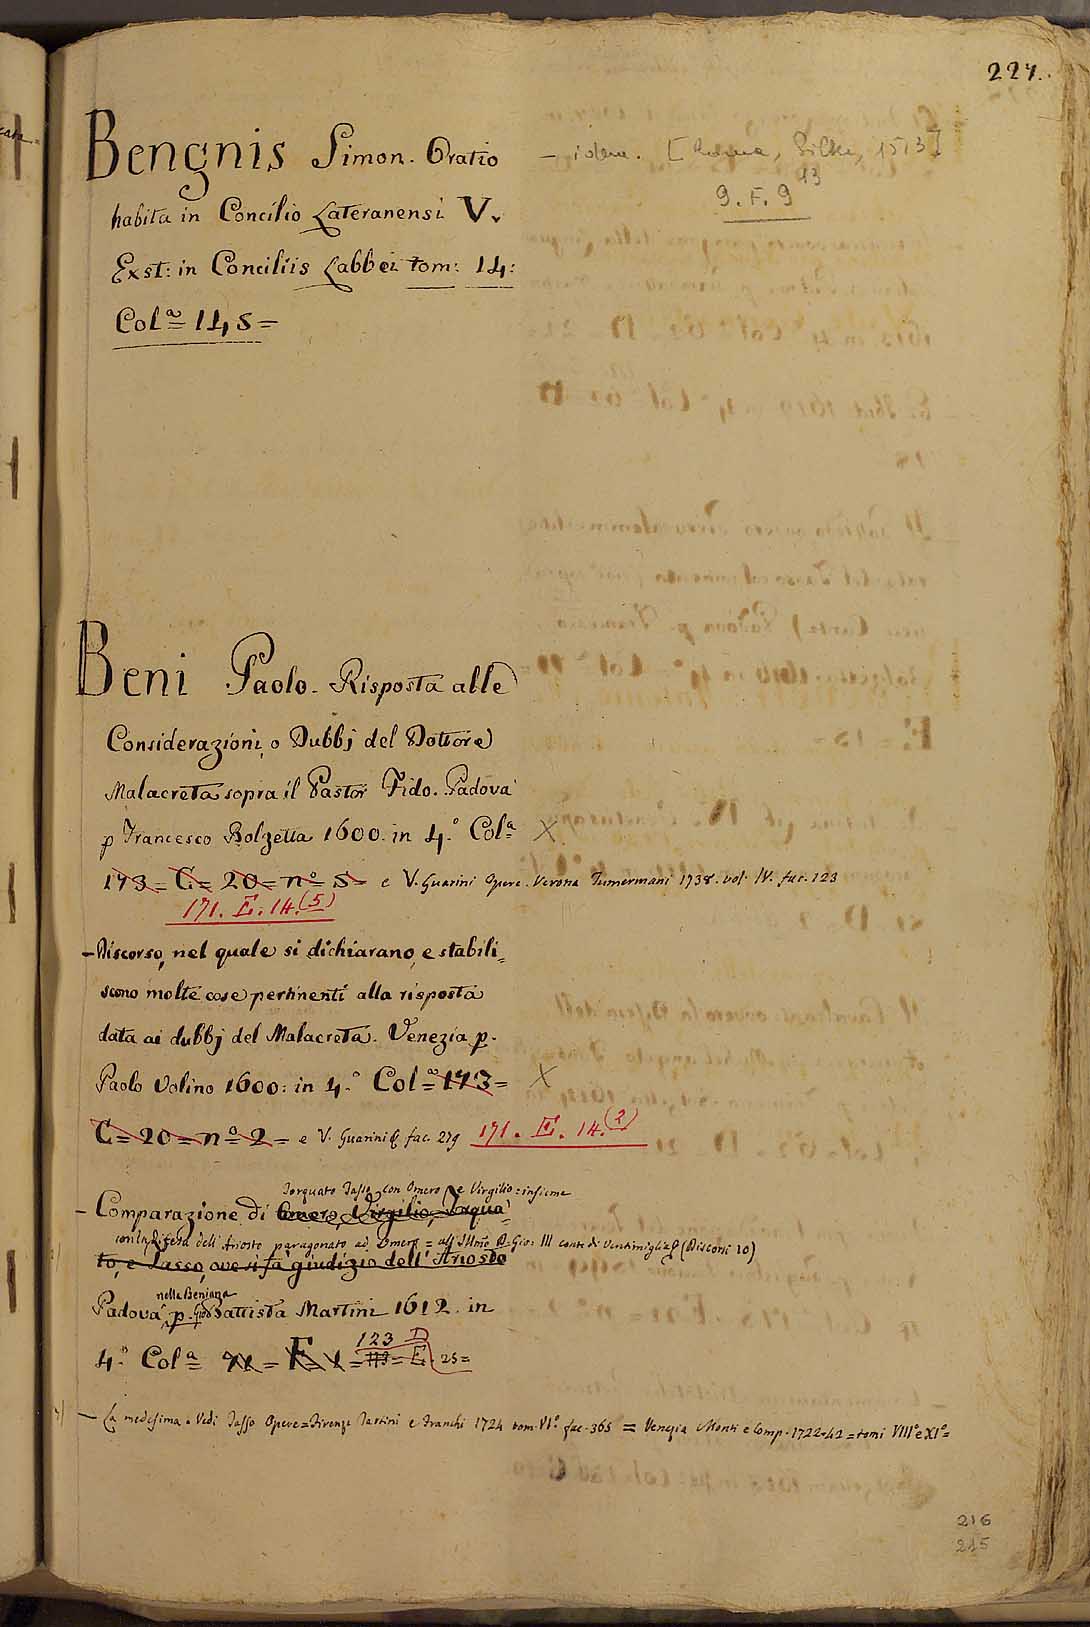 227.
Bengnis Simon. Oratio
habita in Concilio Lateranensi V.
Exst: in Conciliis Labbei tom: 14:
Colª 14, S=
— idem. [Roma, Silber, 1513]
9. F. 9 13
Beni Paolo. Risposta alle
Considerazioni, o Dubbj del Dottore
Malacreta sopra il Pastor Fido. Padova
p Francesco Bolzetta 1600. in 4.° Colª X
173= C= 20= n°= 5= e V. Guarini Opere. Verona Tumermani 1738. vol. IV. fac. 123
171. E. 14.(5)
— Discorso, nel quale si dichiarano, e stabili=
scono molte cose pertinenti alla risposta
data ai dubbj del Malacreta. Venezia p.
Paolo Volino 1600: in 4.° Colª 173= X
C= 20= nº= 2= e V. Guarini fac. 279 171. E. 14.(2)
Torquato Tasso con Omero e Virgilio insieme
— Comparazione di Omero, Virgilio, Taqua
con la Difesa dell' Ariosto paragonato ad Omero = all' Illmo D. Gio: III conte di Ventimiglia (Discorsi 10)
to, e Tasso, ove si fa giudizio dell' Ariosto
nella Beniana
Padova, p. Gio: Battista Martini 1612. in
123 D
4.° Colª = F= 1= = E. 25=
— La medesima. Vedi Tasso Opere= Firenze Tartini e Franchi 1724 tom. VIº. fac. 365 = Venezia Monti e Comp. 1722-42= tomi VIIIº e XIº=
216
215